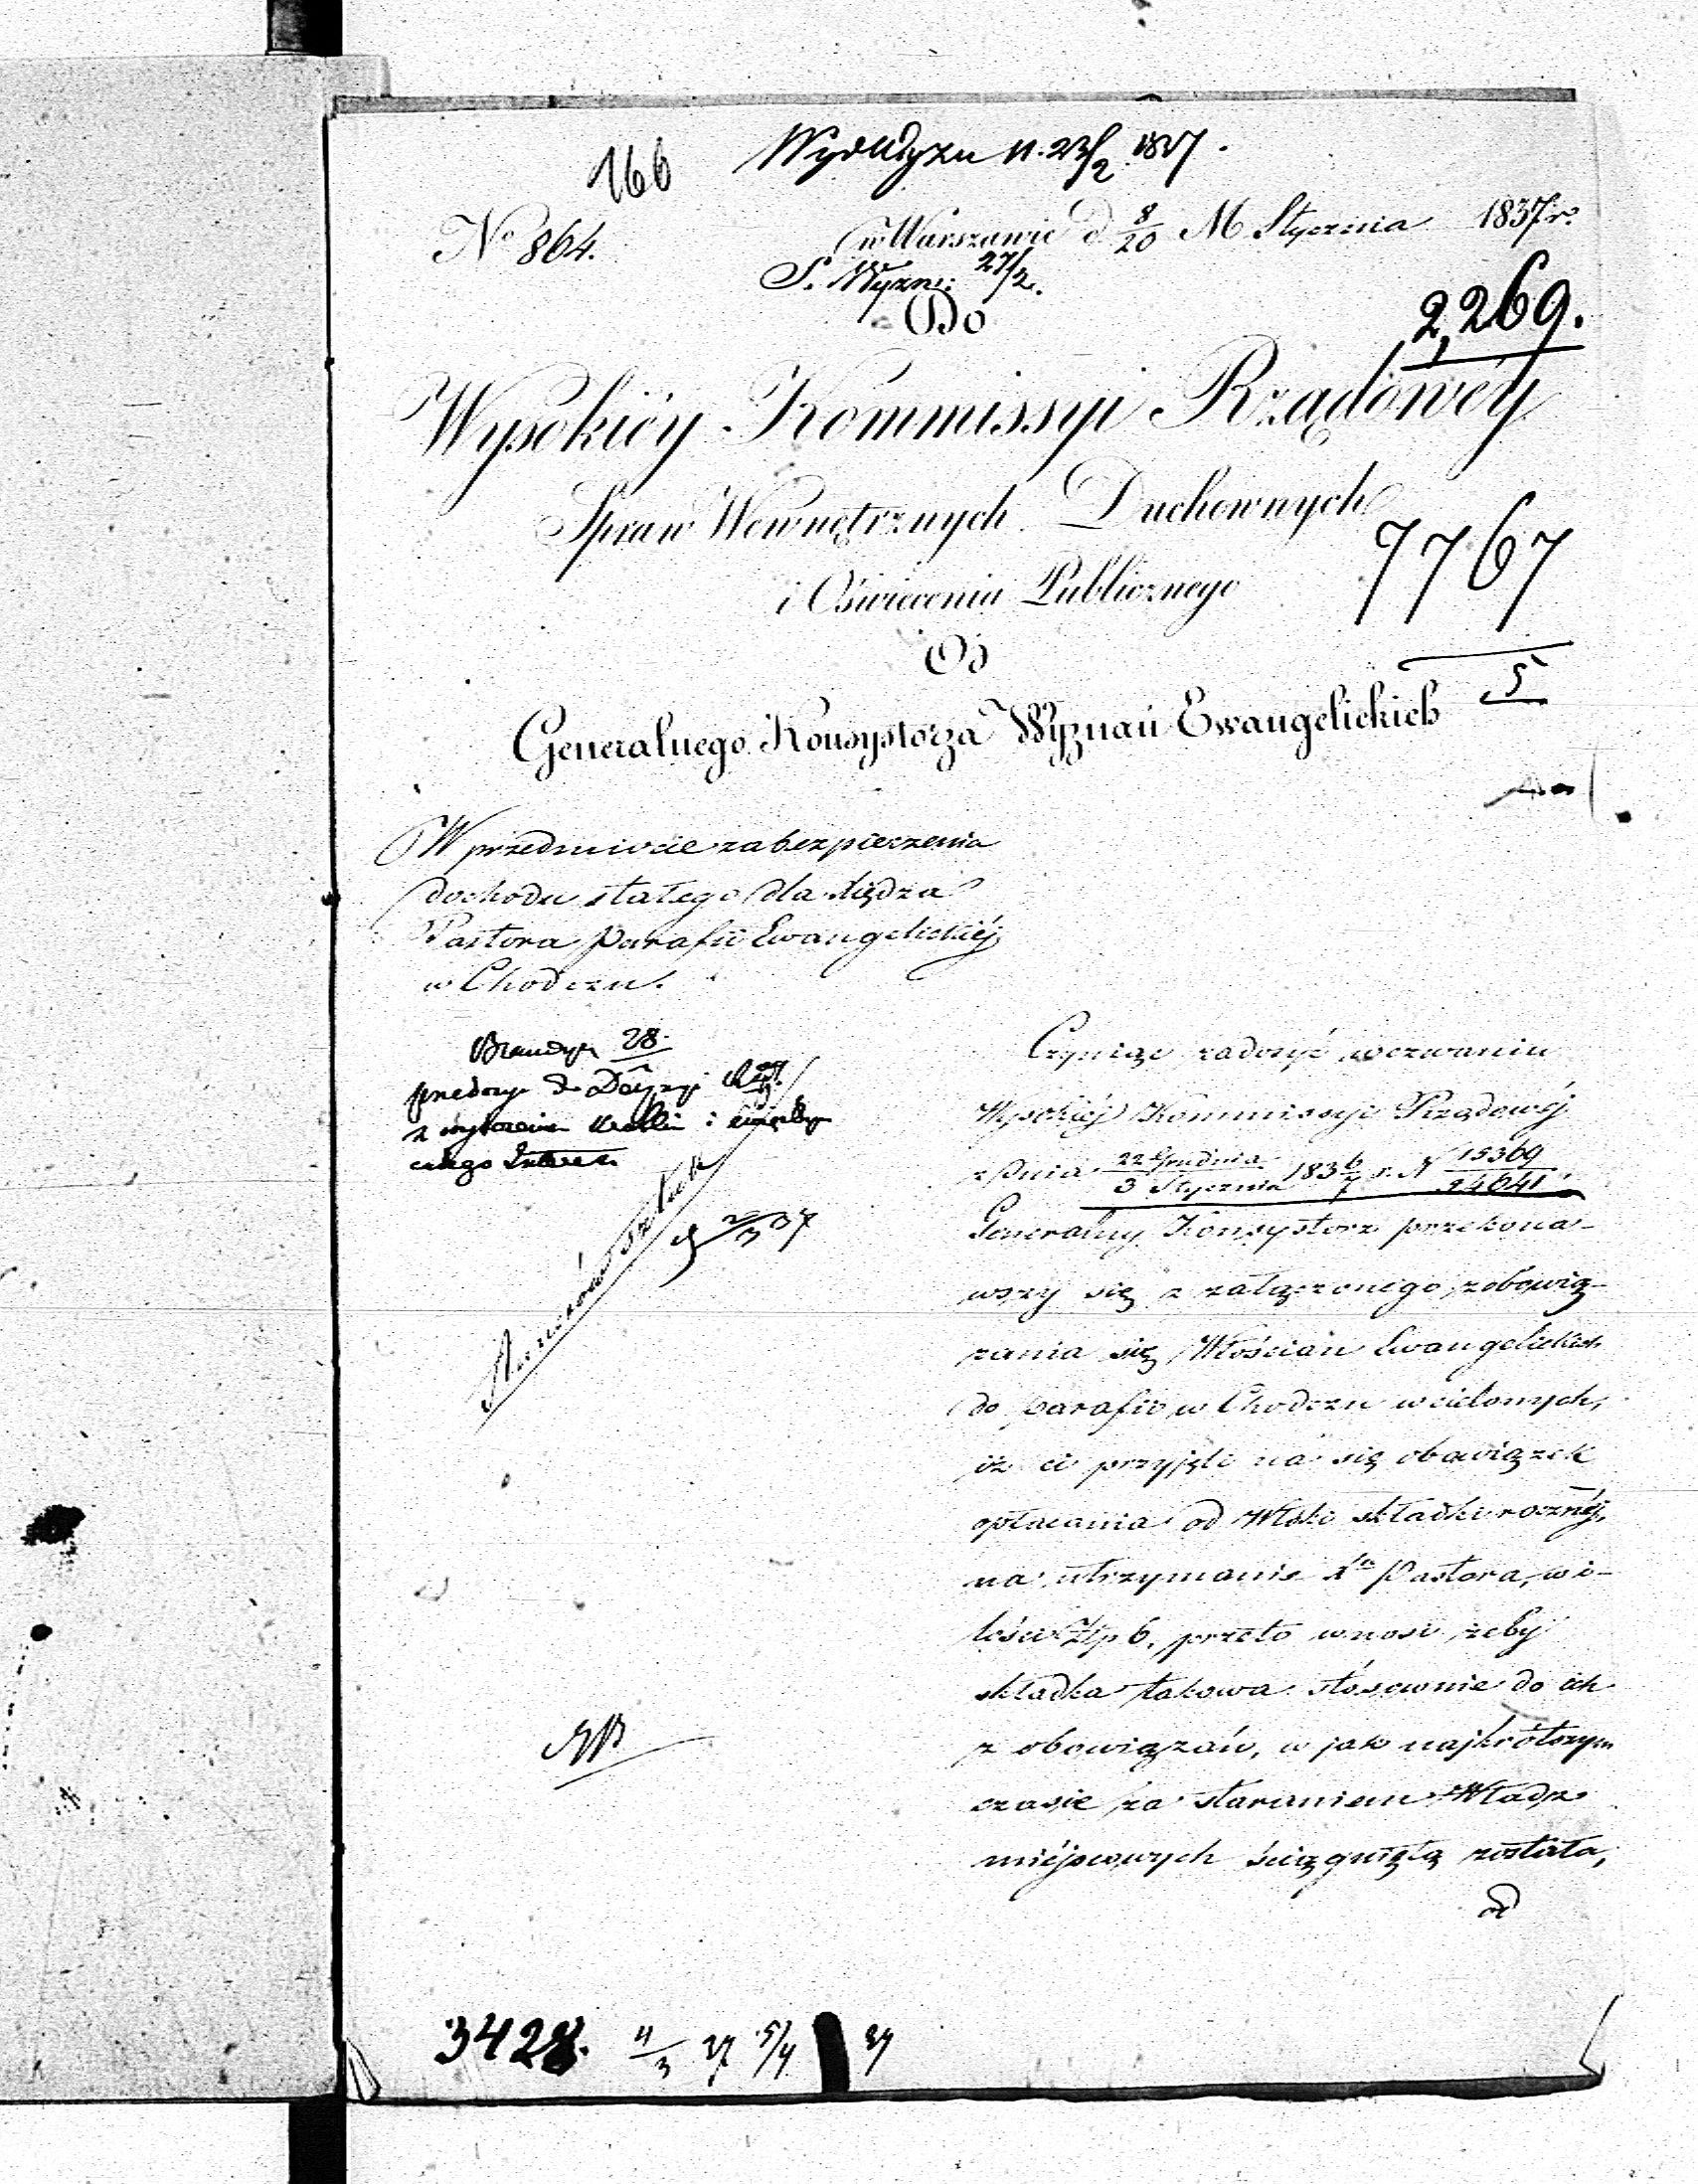 166
N<sup>o</sup> 864.
w Warszawie d. 8/20 M. Stycznia 1837 r<sup>o</sup>
27/2.
Do
2,269.
Wysokiéy Kommissyi Rządowéy
Spraw Wewnętrznych Duchownych
7767
i Oświecenia Publicznego
Od
5
Generalnego Konsystorza Wyznań Ewangelickich
W przedmiocie zabezpieczenia
dochodu stałego dla Xiędza
Pastora Parafii Ewangelickiéj
w Chodczu.
28.
Czyniąc zadosyć wezwaniu
Wysokiéj Kommissyi Rządowéj
z dnia 22 Grudnia/3 Stycznia 1836/7 r. N 15369/14641.
Generalny Konsystorz przekona-
wszy się z załączonego zobowią-
zania się Włościan Ewangelickich
do parafii w Chodczu wcielonych,
iż ci przyjęli na się obowiązek
opłacania od Włóki składki rocznéj,
na utrzymanie X<sup>a</sup> Pastora, w i-
lości Złp 6, przeto wnosi żeby
składka takowa stósownie do ich
zobowiązań, w jak najkrótszym
czasie za staraniem Władz
miéjscowych ściągniętą została,
od
3428. 4/3 37 5/4 37